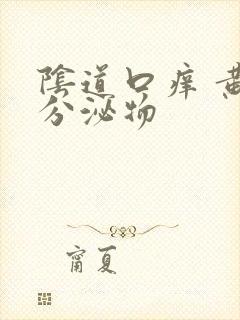 陰道口痒 黄
分泌物
甯夏